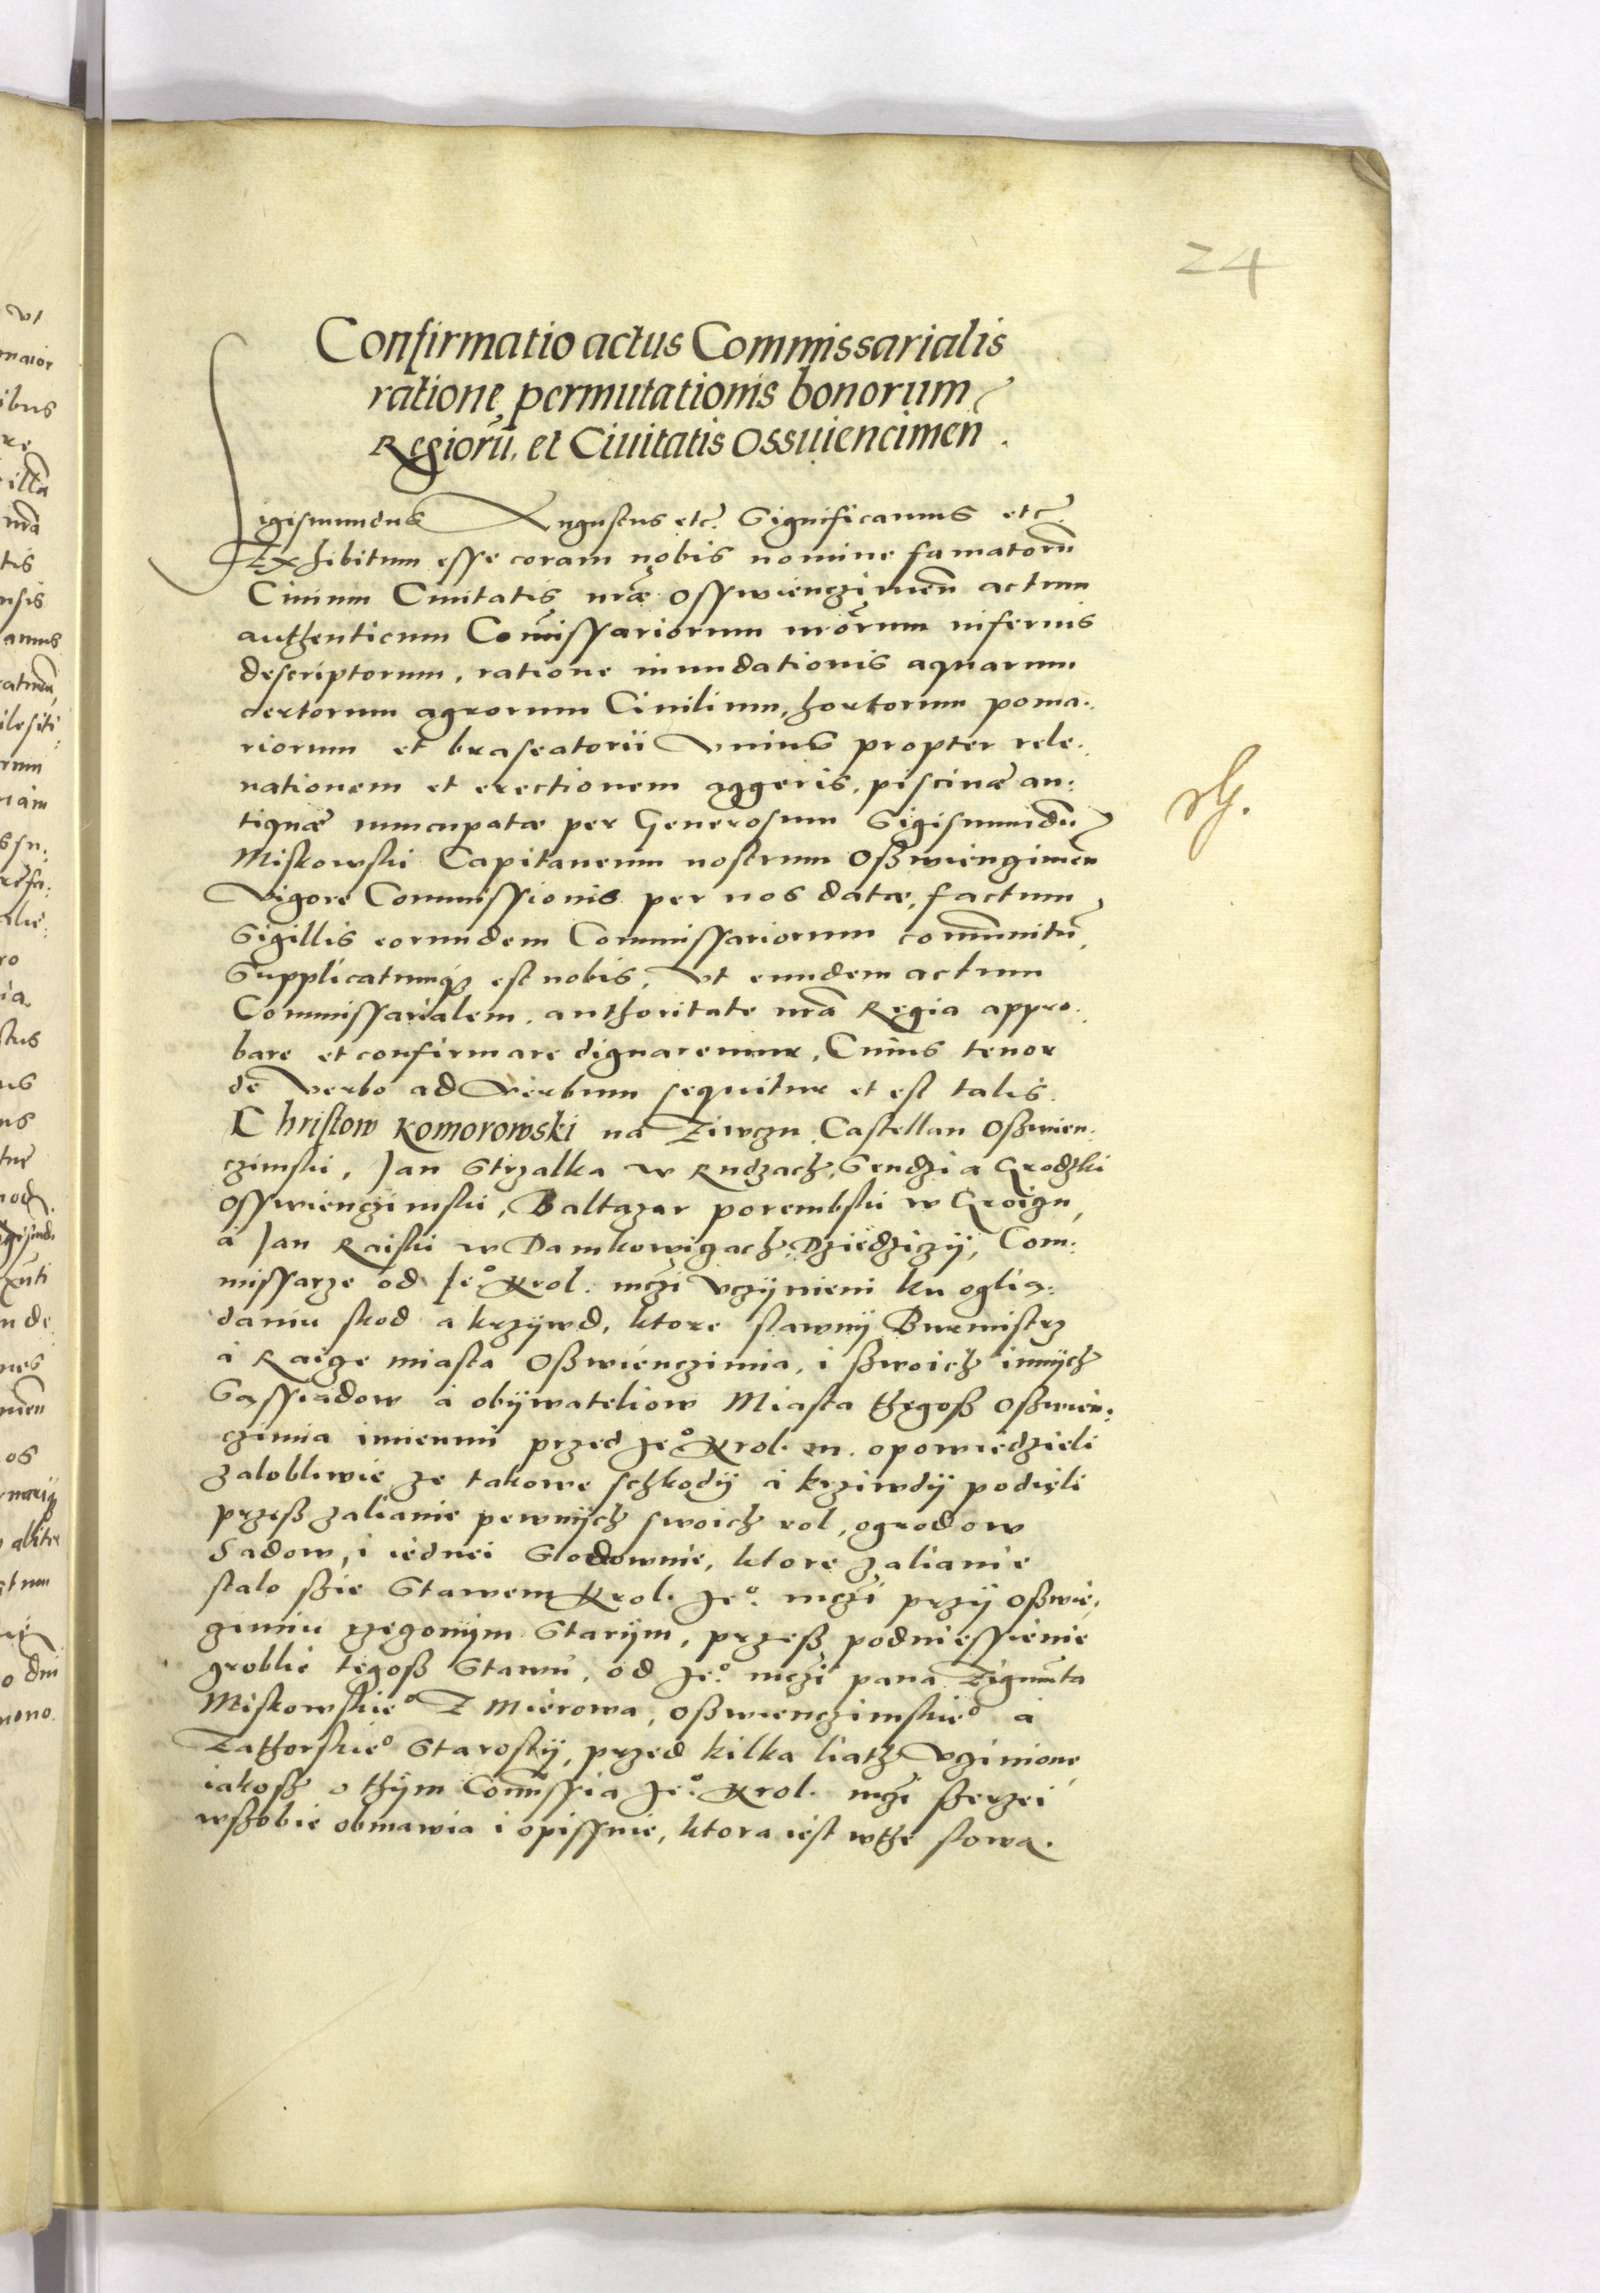 24
Confirmatio actus Commissarialis
ratione permutationis bonorum
Regiorū et Ciuitatis Ossuiencimeñ.
Sigismundus Augustus etc. Significamus etc.
Exhibitum esse coram nobis nomine famatorū
Ciuium Ciuitatis nr̄æ Osswienczimeñ actum
authenticum Com̄issariorum nr̄orum inferius
descriptorum, ratione inundationis aquarum
certorum agrorum Ciuilium, hortorum poma:
riorum et braseatorii vnius propter rele:
uationem et erectionem aggeris, piscinæ an:
tiquæ nuncupatæ per Generosum Sigismundū
Miskowski Capitaneum nostrum Oßwiengimeñ
Vigore Commissionis per nos datæ, factum
Sigillis eorundem Commissariorum com̄unitū,
Supplicatumq; est nobis, vt eundem actum
Commissarialem, authoritate nr̄a Regia appro:
bare et confirmare dignaremur, Cuius tenor
de verbo ad verbum sequitur et est talis.
Christow Komorowski na Ziwczu Castellan Oßwien:
czimski, Jan Strzalka w Rudzach, Sendzia Grodzki
Osswienczimski, Baltazar porembski w Groigu,
á Jan Raiski w Damkowigach Dziedzigÿ, Com:
missarze od Je° Krol. mczi vczÿnieni ku oglią:
daniu skod a krzÿwd, ktore slawnÿ Burmistrz
á Raige miasta Oßwienczimia, i ßwoich innÿch
Sąssiadow á obÿwateliow Miasta thegoß Oßwien:
czimia imienmi przed Je° Krol. m. opowiedzieli
zalobliwie ze takowe schkodÿ á krziwdÿ podięli
przeß zalianie pewnÿch swoich rol, ogrodow
Sadow, i iednei Slodownie, ktore zalianie
stalo ßie Stawem Krol. Je°. mczi przÿ Oßwię:
zimiu rzegonÿm Starÿm, przeß podniessienie
groblie tegoß Stawu, od Je°. mczi pana Zigmūta
Miskowskie° Z Mirowa, Oßwienczimskie° á
Zathorskie° Starostÿ, przed kilka liath vginione,
iakoß o thÿm Com̄issia Je°. Krol. mczi ßerzei
wßobie obmawia i opissuie, ktora iest wthe slowa.